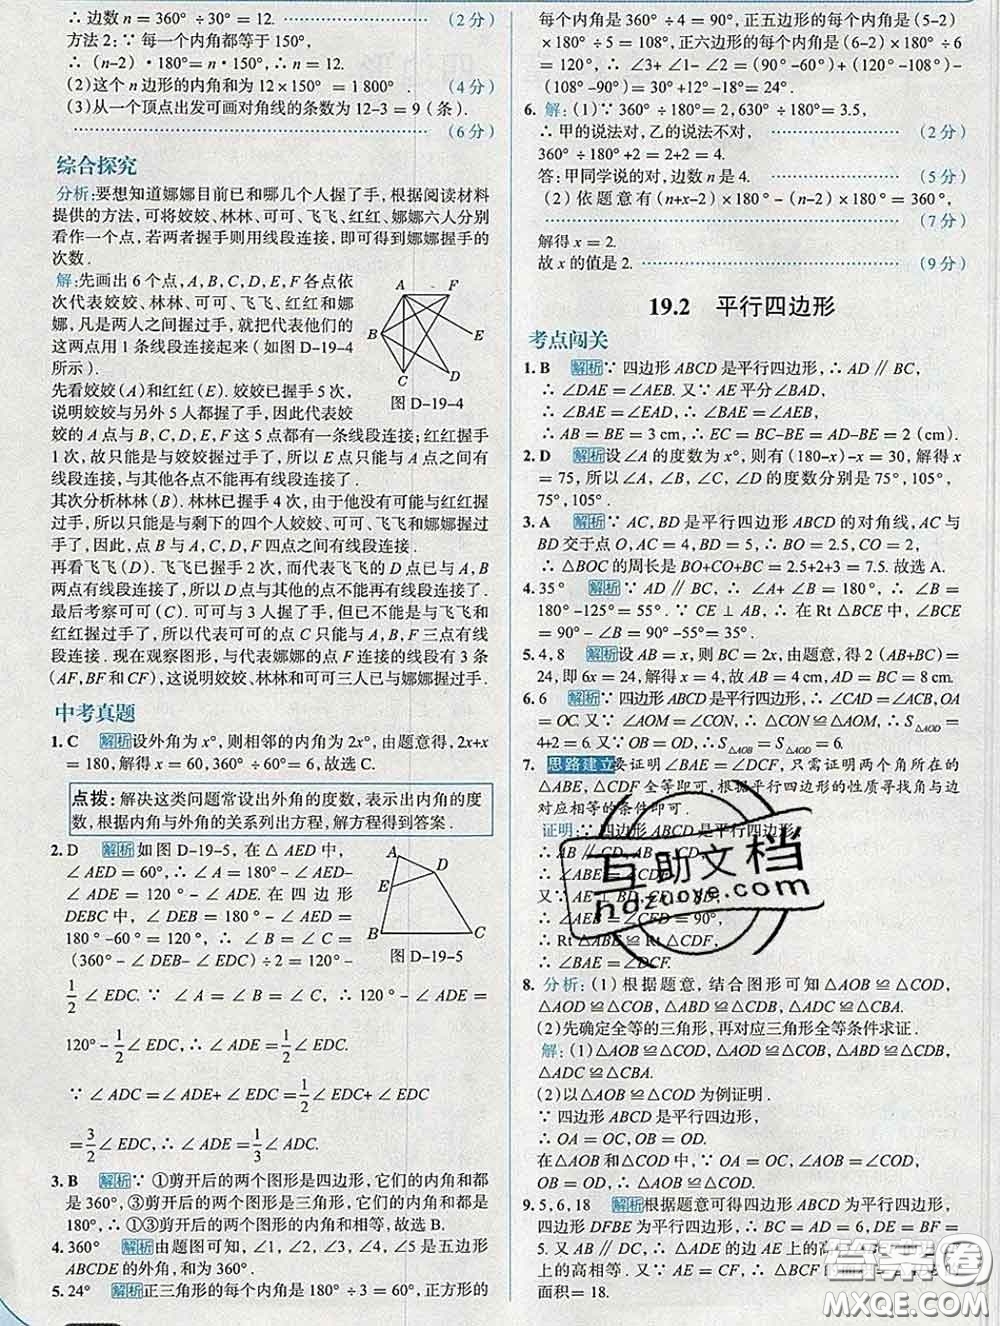 ∴ 边数 n = 360° ÷30° = 12. ……(2 分)
方法 2:∵ 每一个内角都等于 150°,
∴ (n-2)·180° = n·150°,∴ n = 12.
(2)这个 n 边形的内角和为 12×150° = 1 800°. (4 分)
(3)从一个顶点出发可画对角线的条数为 12-3 = 9 (条).
……(6 分)
综合探究
分析:要想知道娜娜目前已和哪几个人握了手,根据阅读材料
提供的方法,可将姣姣、林林、可可、飞飞、红红、娜娜六人分别
看作一个点,若两者握手则用线段连接,即可得到娜娜握手的
次数.
解:先画出 6 个点,A,B,C,D,E,F 各点依
次代表姣姣、林林、可可、飞飞、红红和娜
娜,凡是两人之间握过手,就把代表他们的
点用 1 条线段连接起来(如图 D-19-4
所示).
先看姣姣(A)和红红(E). 姣姣已握手 5 次,
说明姣姣与另外 5 人都握了手,因此代表姣
姣的 A 点与 B,C,D,E,F 这 5 点都有一条线段连接;红红握手
1 次,故只能是与姣姣握了手,所以 E 点只能与 A 点有线段连
接,与其他各点不能再有线段连接.
其次分析林林(B). 林林已握手 4 次,由于他没有可能与红红
握手,所以只能是与剩下的四个人姣姣、可可、飞飞和娜娜握过
手了,因此,点 B 与 A,C,D,F 四点之间有线段连接.
再看飞飞(D). 飞飞已握手 2 次,而代表飞飞的 D 点已与 A,B
两点有线段连接了,所以 D 点与其他的点不能再有线段连接了.
最后考察可可(C). 可可与 3 人握了手,但已不能是与飞飞和
红红握过手了,所以代表可可的点 C 只能与 A,B,F 三点有线
段连接. 现在观察图形,与代表娜娜的点 F 连接的线段有 3 条
(AF,BF 和 CF),这说明姣姣、林林和可可三人已与娜娜握手了.
A
F
B
E
C
D
图 D-19-4
中考真题
1. C 解析 设外角为 x°,则相邻的内角为 2x°,由题意得,2x+x
= 180,解得 x = 60,360°÷60° = 6,故选 C.
点拨:解决这类问题常设出外角的度数,表示出内角的度
数,根据内角与外角的关系列出方程,解方程得到答案.
2. D 解析 如图 D-19-5,在 △ AED 中,
∠AED = 60°,∴ ∠A = 180° - ∠AED-
∠ADE = 120° - ∠ADE. 在四边形
DEBC 中,∠DEB = 180° - ∠AED =
180° -60° = 120°,∴ ∠B = ∠C =
(360° -∠DEB-∠EDC) ÷2 = 120° -
1/2 ∠EDC. ∵ ∠A = ∠B = ∠C,∴ 120° -∠ADE =
120°-1/2∠EDC,∴ ∠ADE = 1/2∠EDC.
∵ ∠ADC = ∠ADE + ∠EDC = 1/2∠EDC + ∠EDC
= 3/2∠EDC,∴ ∠ADE = 1/3∠ADC.
A
D
E
B
C
图 D-19-5
3. B 解析 ∵ ①剪开后的两个图形是四边形,它们的内角和都
是 360°,③剪开后的两个图形是三角形,它们的内角和都是
180°,∴ ①③剪开后的两个图形的内角和相等,故选 B.
4. 360° 解析 由题图可知,∠1,∠2,∠3,∠4,∠5 是五边形
ABCDE 的外角,和为 360°.
5. 24° 解析 正三角形的每个内角是 180° ÷3 = 60°,正方形的
每个内角是 360° ÷4 = 90°,正五边形的每个内角是(5-2)
×180° ÷5 = 108°,正六边形的每个内角是(6-2) ×180° ÷6
= 120°,∴ ∠3+∠1-∠2 = (90° -60°) +(120° -108°) -
(108° -90°) = 30° +12° -18° = 24°.
6. 解:(1)∵ 360° ÷180° = 2,630° ÷180° = 3.5,
∴ 甲的说法对,乙的说法不对, ……(2 分)
360° ÷180° +2 = 2+2 = 4.
答:甲同学说的对,边数 n 是 4. ……(5 分)
(2) 依题意有 (n+x-2) ×180° -(n-2) ×180° = 360°,
……(7 分)
解得 x = 2.
故 x 的值是 2. ……(9 分)
19.2 平行四边形
考点闯关
1. B 解析 ∵ 四边形 ABCD 是平行四边形,∴ AD ∥ BC,
∴ ∠DAE = ∠AEB. 又∵ AE 平分∠BAD,
∴ ∠BAE = ∠EAD,∴ ∠BAE = ∠AEB,
∴ AB = BE = 3 cm,∴ EC = BC-BE = AD-BE = 2 (cm).
2. D 解析 设∠A 的度数为 x°,则有(180-x)-x = 30,解得 x
= 75,所以∠A,∠B,∠C,∠D 的度数分别是 75°,105°,
75°,105°.
3. A 解析 ∵ AC,BD 是平行四边形 ABCD 的对角线,AC 与
BD 交于点 O,AC = 4,BD = 5,∴ BO = 2.5,CO = 2,
∴ △BOC 的周长是 BO+CO+BC = 2.5+2+3 = 7.5. 故选 A.
4. 35° 解析 ∵ AD ∥ BC,∴ ∠A+ ∠B = 180°,∴ ∠B =
180° -125° = 55°. ∵ CE ⊥ AB,∴ 在 Rt △BCE 中,∠BCE
= 90° - ∠B = 90° -55° = 35°.
5. 4,8 解析 设 AB = x,则 BC = 2x,由题意,得 2 (AB+BC) =
24,即 6x = 24,解得 x = 4,故 AD = BC = 8 cm.
6. 6 解析 ∵ 四边形 ABCD 是平行四边形,∴ ∠CAD = ∠ACB,OA
= OC. 又∵ ∠AOM = ∠CON,∴ △CON ≌ △AOM,∴ S△AOD =
4+2 = 6. 又∵ OB = OD,∴ S△AOB = S△AOD = 6.
7. 思路建立 要证明 ∠BAE = ∠DCF,只需证明两个角所在的
△ABE,△CDF 全等即可,根据平行四边形的性质寻找角与边
对应相等的条件即可.
证明:∵ 四边形 ABCD 是平行四边形,
∴ AB ∥ CD,AB = CD,
∴
又∵ AE ⊥ BD,
∴ ∠AEB = ∠CFD = 90°,
∴ Rt △ABE ≌ △CDF,
∴ ∠BAE = ∠DCF.
8. 分析:(1) 根据题意,结合图形可知 △AOB ≌ △COD,
△AOD ≌ △COB,△ABD ≌ △CDB,△ADC ≌ △CBA.
(2)先确定全等的三角形,再对应三角形全等条件求证.
解:(1)△AOB ≌ △COD,△AOD ≌ △COB,△ABD ≌ △CDB,
△ADC ≌ △CBA.
(2)以△AOB ≌ △COD 为例证明.
∵ 四边形 ABCD 是平行四边形,
∴ OA = OC,OB = OD.
在△AOB 和△COD 中,∵ OA = OC,∠AOB = ∠COD,OB = OD,
∴ △AOB ≌ △COD.
9. 5,6,18 解析 根据题意可得四边形 ABCD 为平行四边形,
四边形 DFBE 为平行四边形,∴ BC = AD = 6,DE = BF =
5. 又∵ AB ∥ DC,∴ △ADE 的边 AE 上的高
上的高相等. 又∵ AE = CF,∴
面积 = 18.
互助文档
hdzuoye.com
答案圈
MXQE.COM